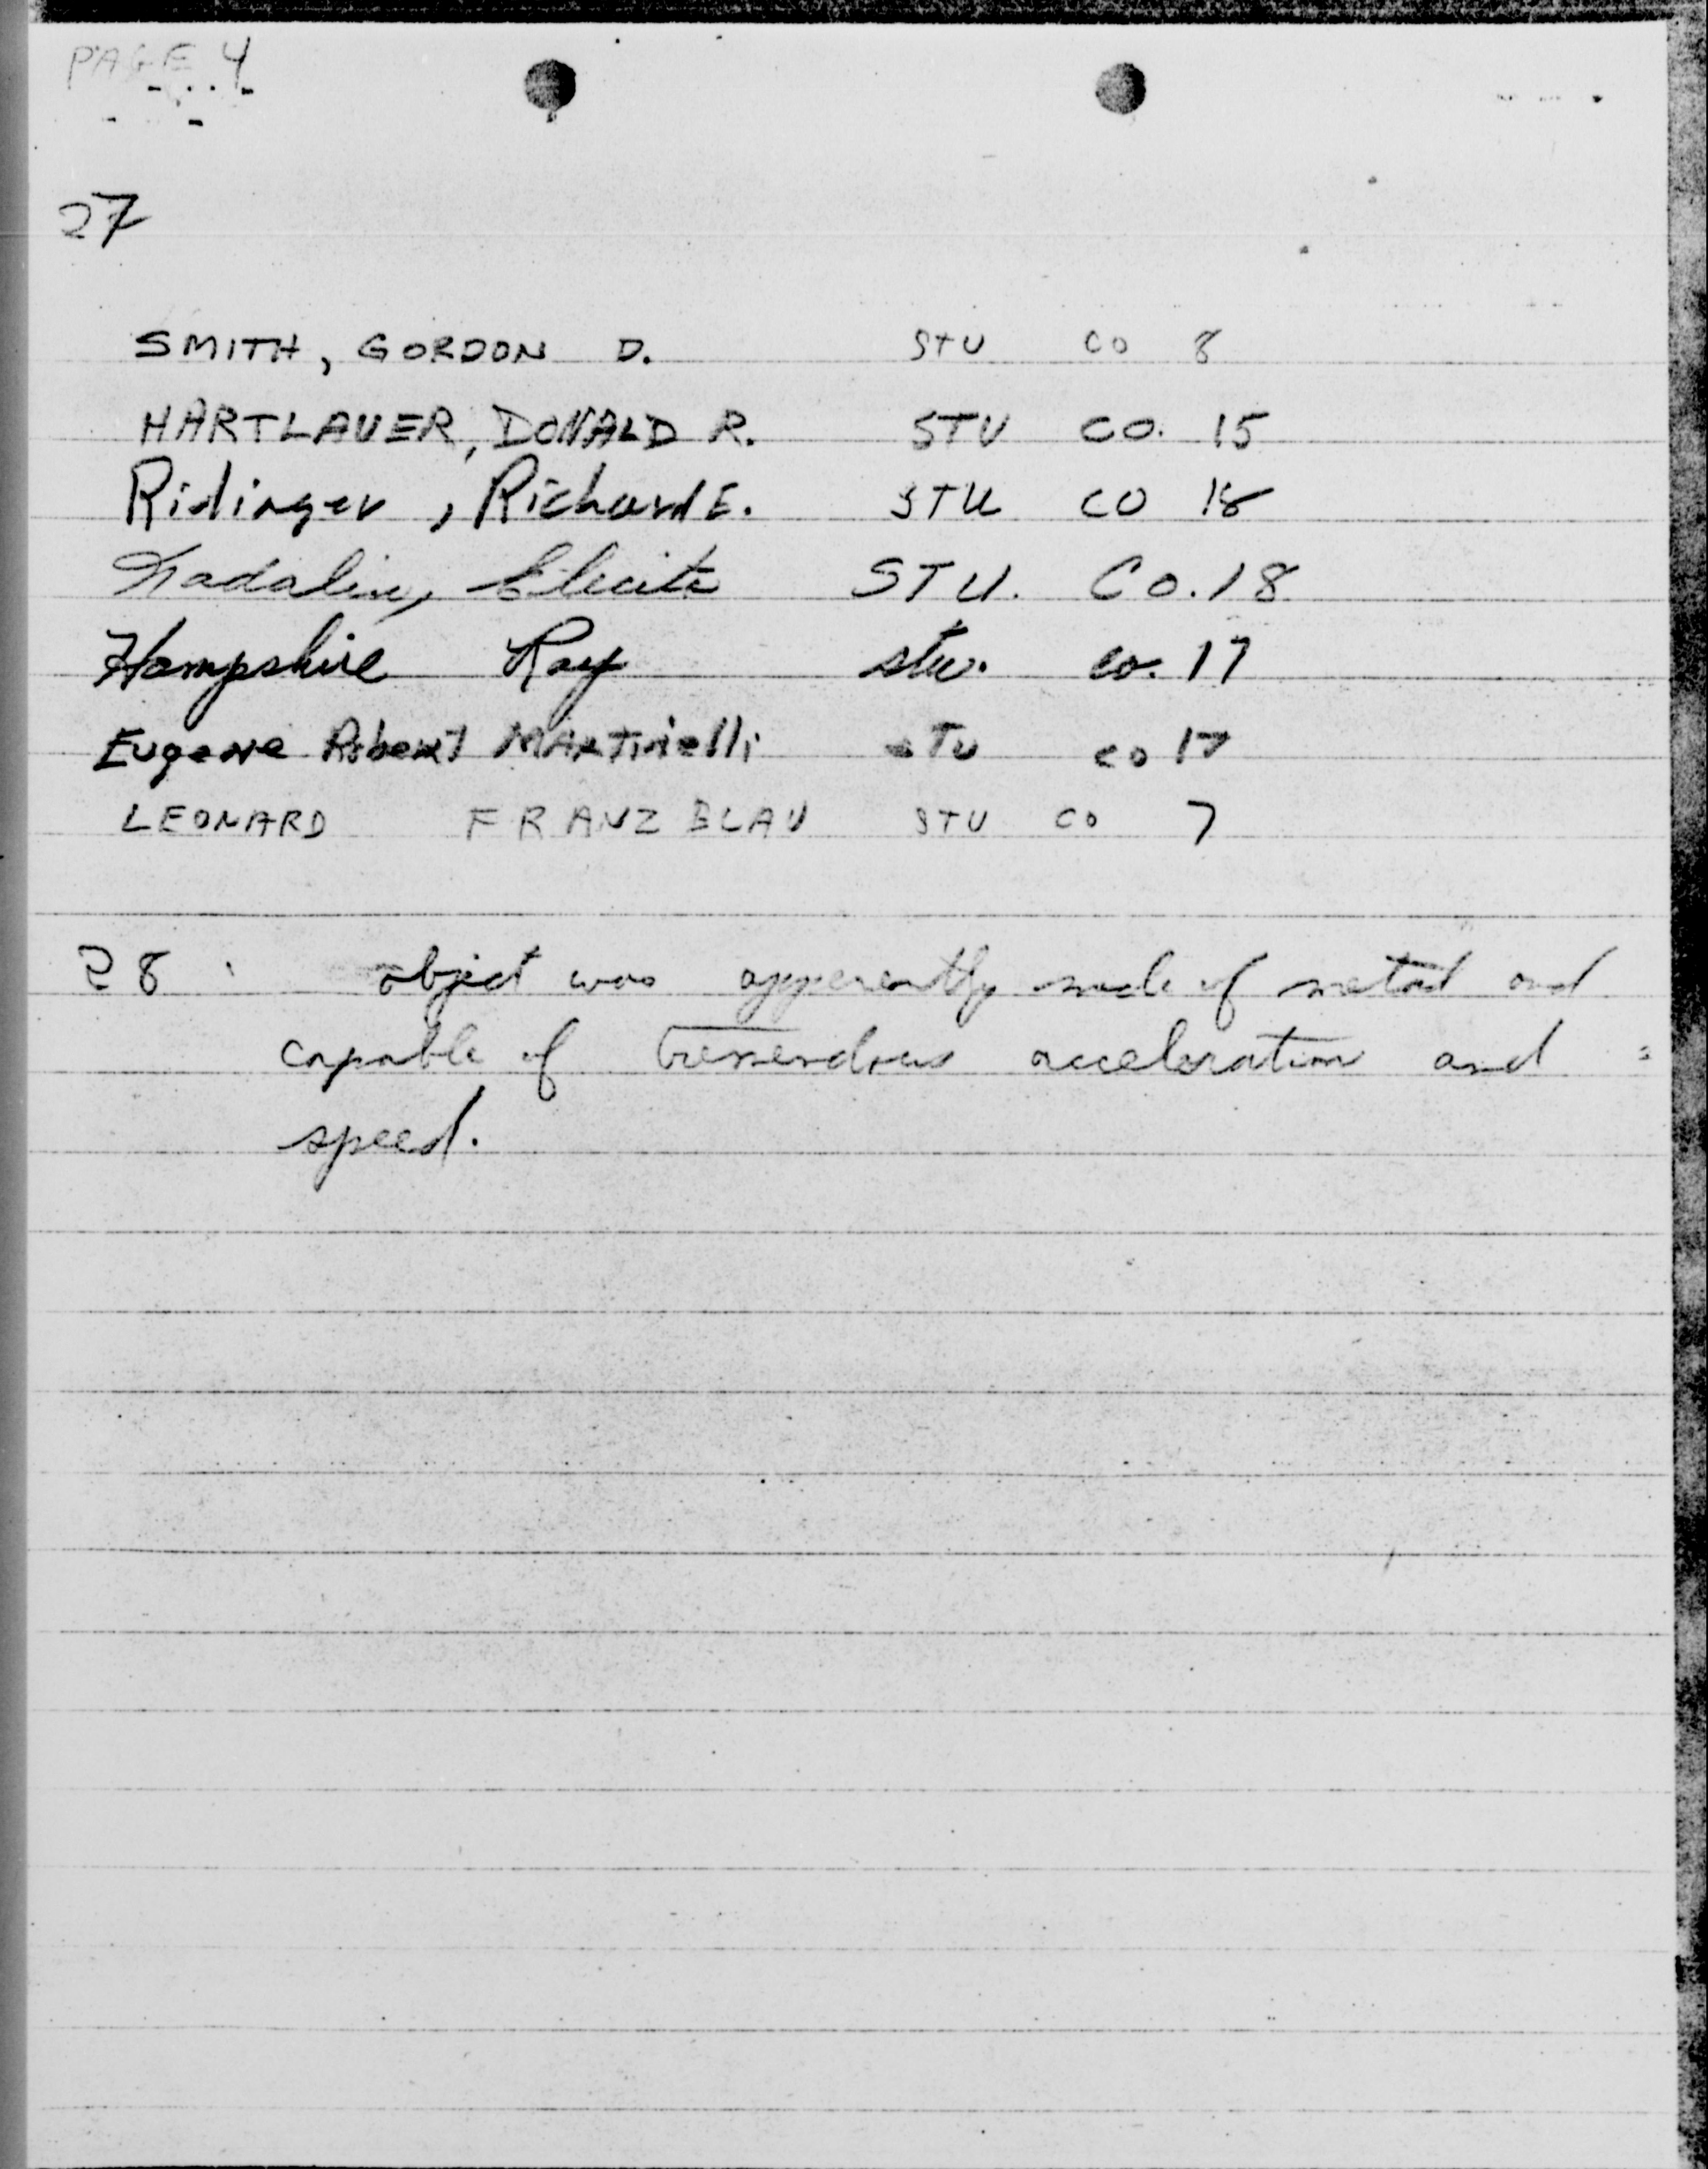 PAGE 4
27
SMITH, GORDON D. STU CO 8
HARTLAUER, DONALD R. STU CO. 15
Ridinger, Richard E. STU CO 18
STU. Co. 18
Hampshire Ray stu. co. 17
Eugene Robert MARTinelli sTu co 17
LEONARD FRANZBLAU STU CO 7
28 object was apperently made of metal and
capable of tremendous acceleration and
speed.